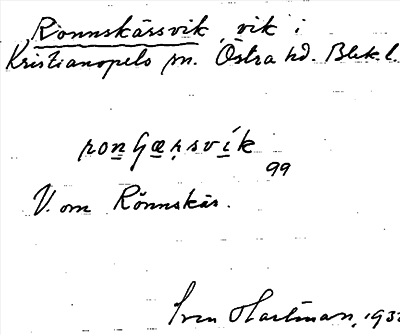 Rönnskärsvik, vik i
Kristianopels sn. Östra hd. Blek. l.
99
V. om Rönnskär.
Sven Hartman,